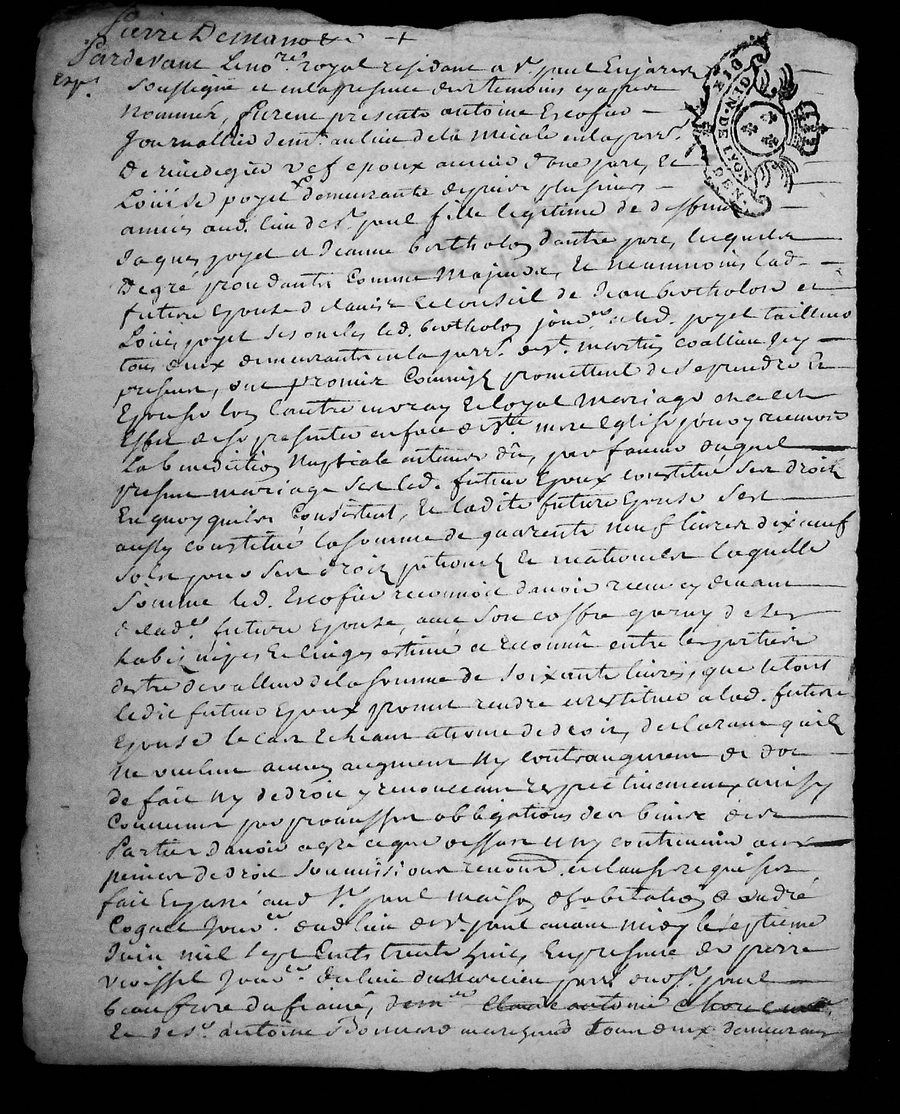 Pierre Demano
Pardevant le no.re royal residant a St. paul En Jarest
Exp.
soussigné et en la presence des temoins cy apres
nommés, furent presents antoine Escofier
Journallier dem.t au lieu de la Meale en la parr.
De
vef epoux a venir d'une part, Et
Loüise poyet demeurante depuis plusieurs
années aud. lieu de St. paul fille legitime de deffunt
Jaques poyet et Jeanne bertholon d'autre part, lesquels
De gré procedants Comme Majeurs, Et neanmoins lad.
future Epouse de l'avis Et Conseil de Jean bertholon et
Loüis poyet ses oncles led. bertholon jour.er et led. poyet tailleur
tous deux demeurants en la parr. de St. martin Coallieu Icy
presents, ont promis Commis promettent de se prendre Et
Epouser l'un l'autre en vray Et loyal Mariage et a cet
Effet de se presenter en face de Ste mere Eglise pour y recevoir
La benediction Nuptiale antienes dû, par faveur duquel
present mariage s'est led. futur Epoux constitué ses droits
En quoy quils Consistent, Et ladite future Epouse s'est
aussy constitué la somme de quarente neuf livres dix neuf
sols pour ses droits paternels et maternels laquelle
somme led. Escofier reconnoit d'avoir receu cy devant
de lad. future Epouse, avec son coffre garny de ses
habits nipes Et linges estimé et reconnu entre les parties
d'estre de valleur de la somme de soixante livres, que le tout
ledit futur Epoux promet rendre et restituer a lad. future
Epouse le cas Echeant a forme de droit, declarant qu'ils
ne veulent aucun augment ny contraugment de dot
de fait ny de droit y renonceant respectivement, ainsy
Convenu par promesses obligations des biens des
Parties d'avoir agreé ce que dessus et ny contrevenir aux
peines de droit soumissions renond. et clauses requises
fait Et passé aud. St. paul maison d'habitation d'andré
Cognet Jour.er dud. lieu de St. paul avant midy le septieme
Juin mil sept Cents trente huit En presence de pierre
Jour.er du lieu du parr. dud. St. paul
beau frere du fiancé, dem.t Claude antoine
Et de Sr. antoine Bonnard marchand tous deux demeurants